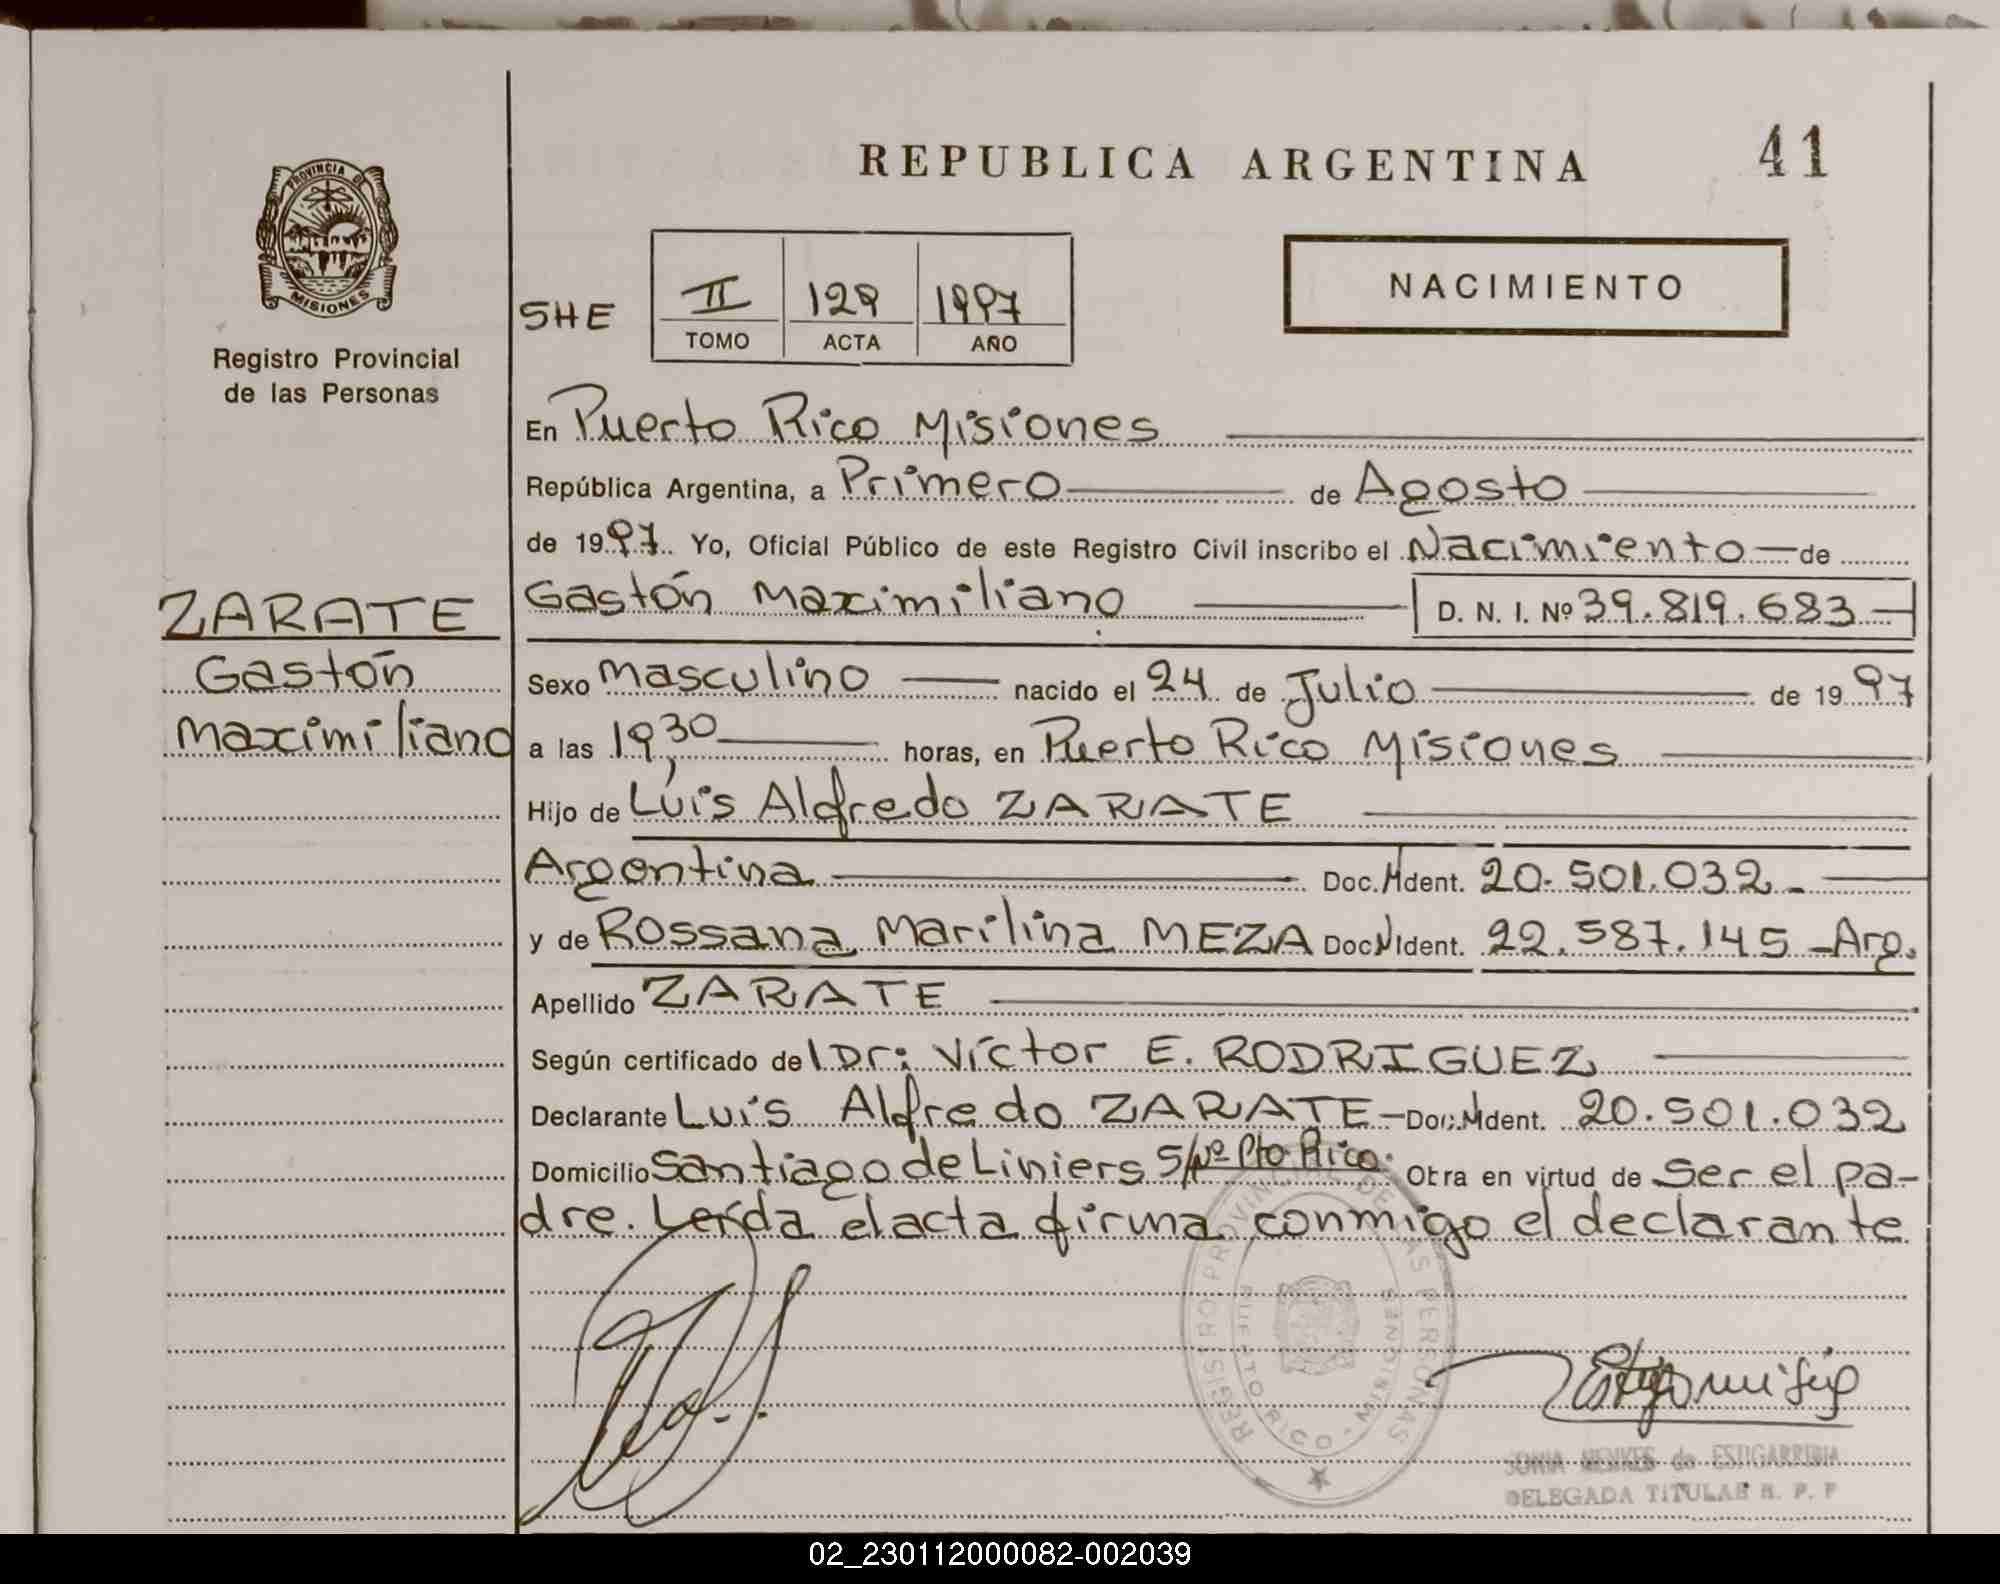 REPUBLICA ARGENTINA
41
PROVINCIA DE
MISIONES
Registro Provincial
de las Personas
NACIMIENTO
SHE
II 129 1997
TOMO ACTA AÑO
En Puerto Rico Misiones
República Argentina, a Primero de Agosto
de 1997 Yo, Oficial Público de este Registro Civil inscribo el Nacimiento de
Gastón Maximiliano D. N. I. Nº 39.819.683
ZARATE
Gastón
Maximiliano
Sexo Masculino nacido el 24 de Julio de 1997
a las 19,30 horas, en Puerto Rico Misiones
Hijo de Luis Alfredo ZARATE
Argentina Doc. Ident. 20.501.032
y de Rossana Marilina MEZA Doc. Ident. 22.587.145 - Arg.
Apellido ZARATE
Según certificado del Dr: Víctor E. RODRIGUEZ
Declarante Luis Alfredo ZARATE - Doc. Ident. 20.501.032
Domicilio Santiago de Liniers S/Nº Pto Rico. Obra en virtud de Ser el pa-
dre. Leída el acta firma conmigo el declarante
REGISTRO PROVINCIAL DE LAS PERSONAS
PUERTO RICO - MISIONES
de ESTIGARRIBIA
DELEGADA TITULAR R. P. P
02_230112000082-002039